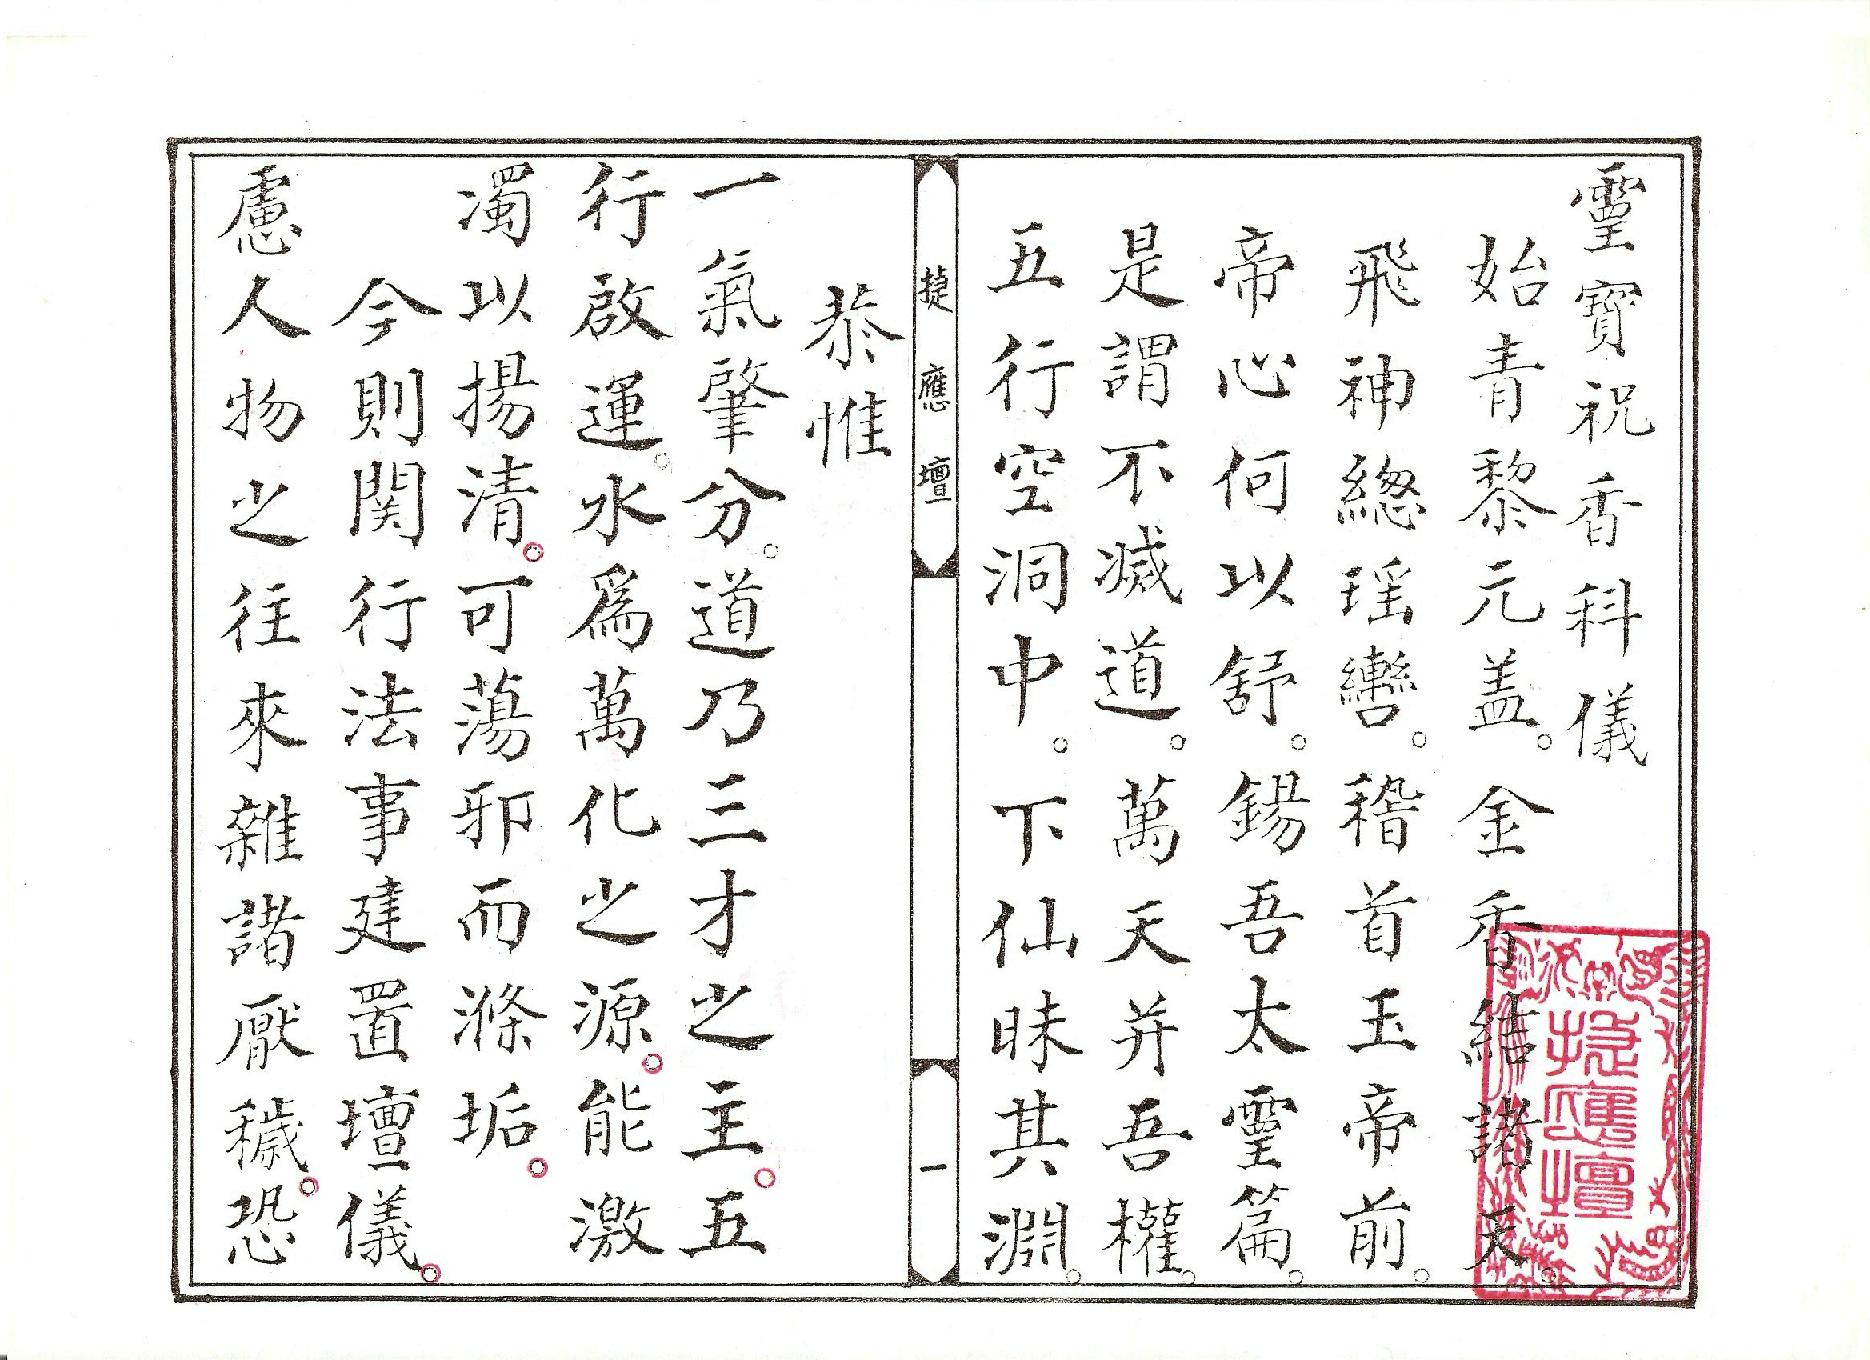 霊寳祝香科儀
始青黎元盖。金香結諸天。
飛神總瑶轡。稽首玉帝前。
帝心何以舒。錫吾太霊篇。
是謂不滅道。萬天并吾權。
五行空洞中。下仙昧其淵。
捷應壇
一
恭惟
一氣肇分。道乃三才之主。五
行啟運。水為萬化之源。能激
濁以揚清。可蕩邪而滌垢。
今則関行法事建置壇儀。
慮人物之往來雜諸厭穢。恐
捷應壇